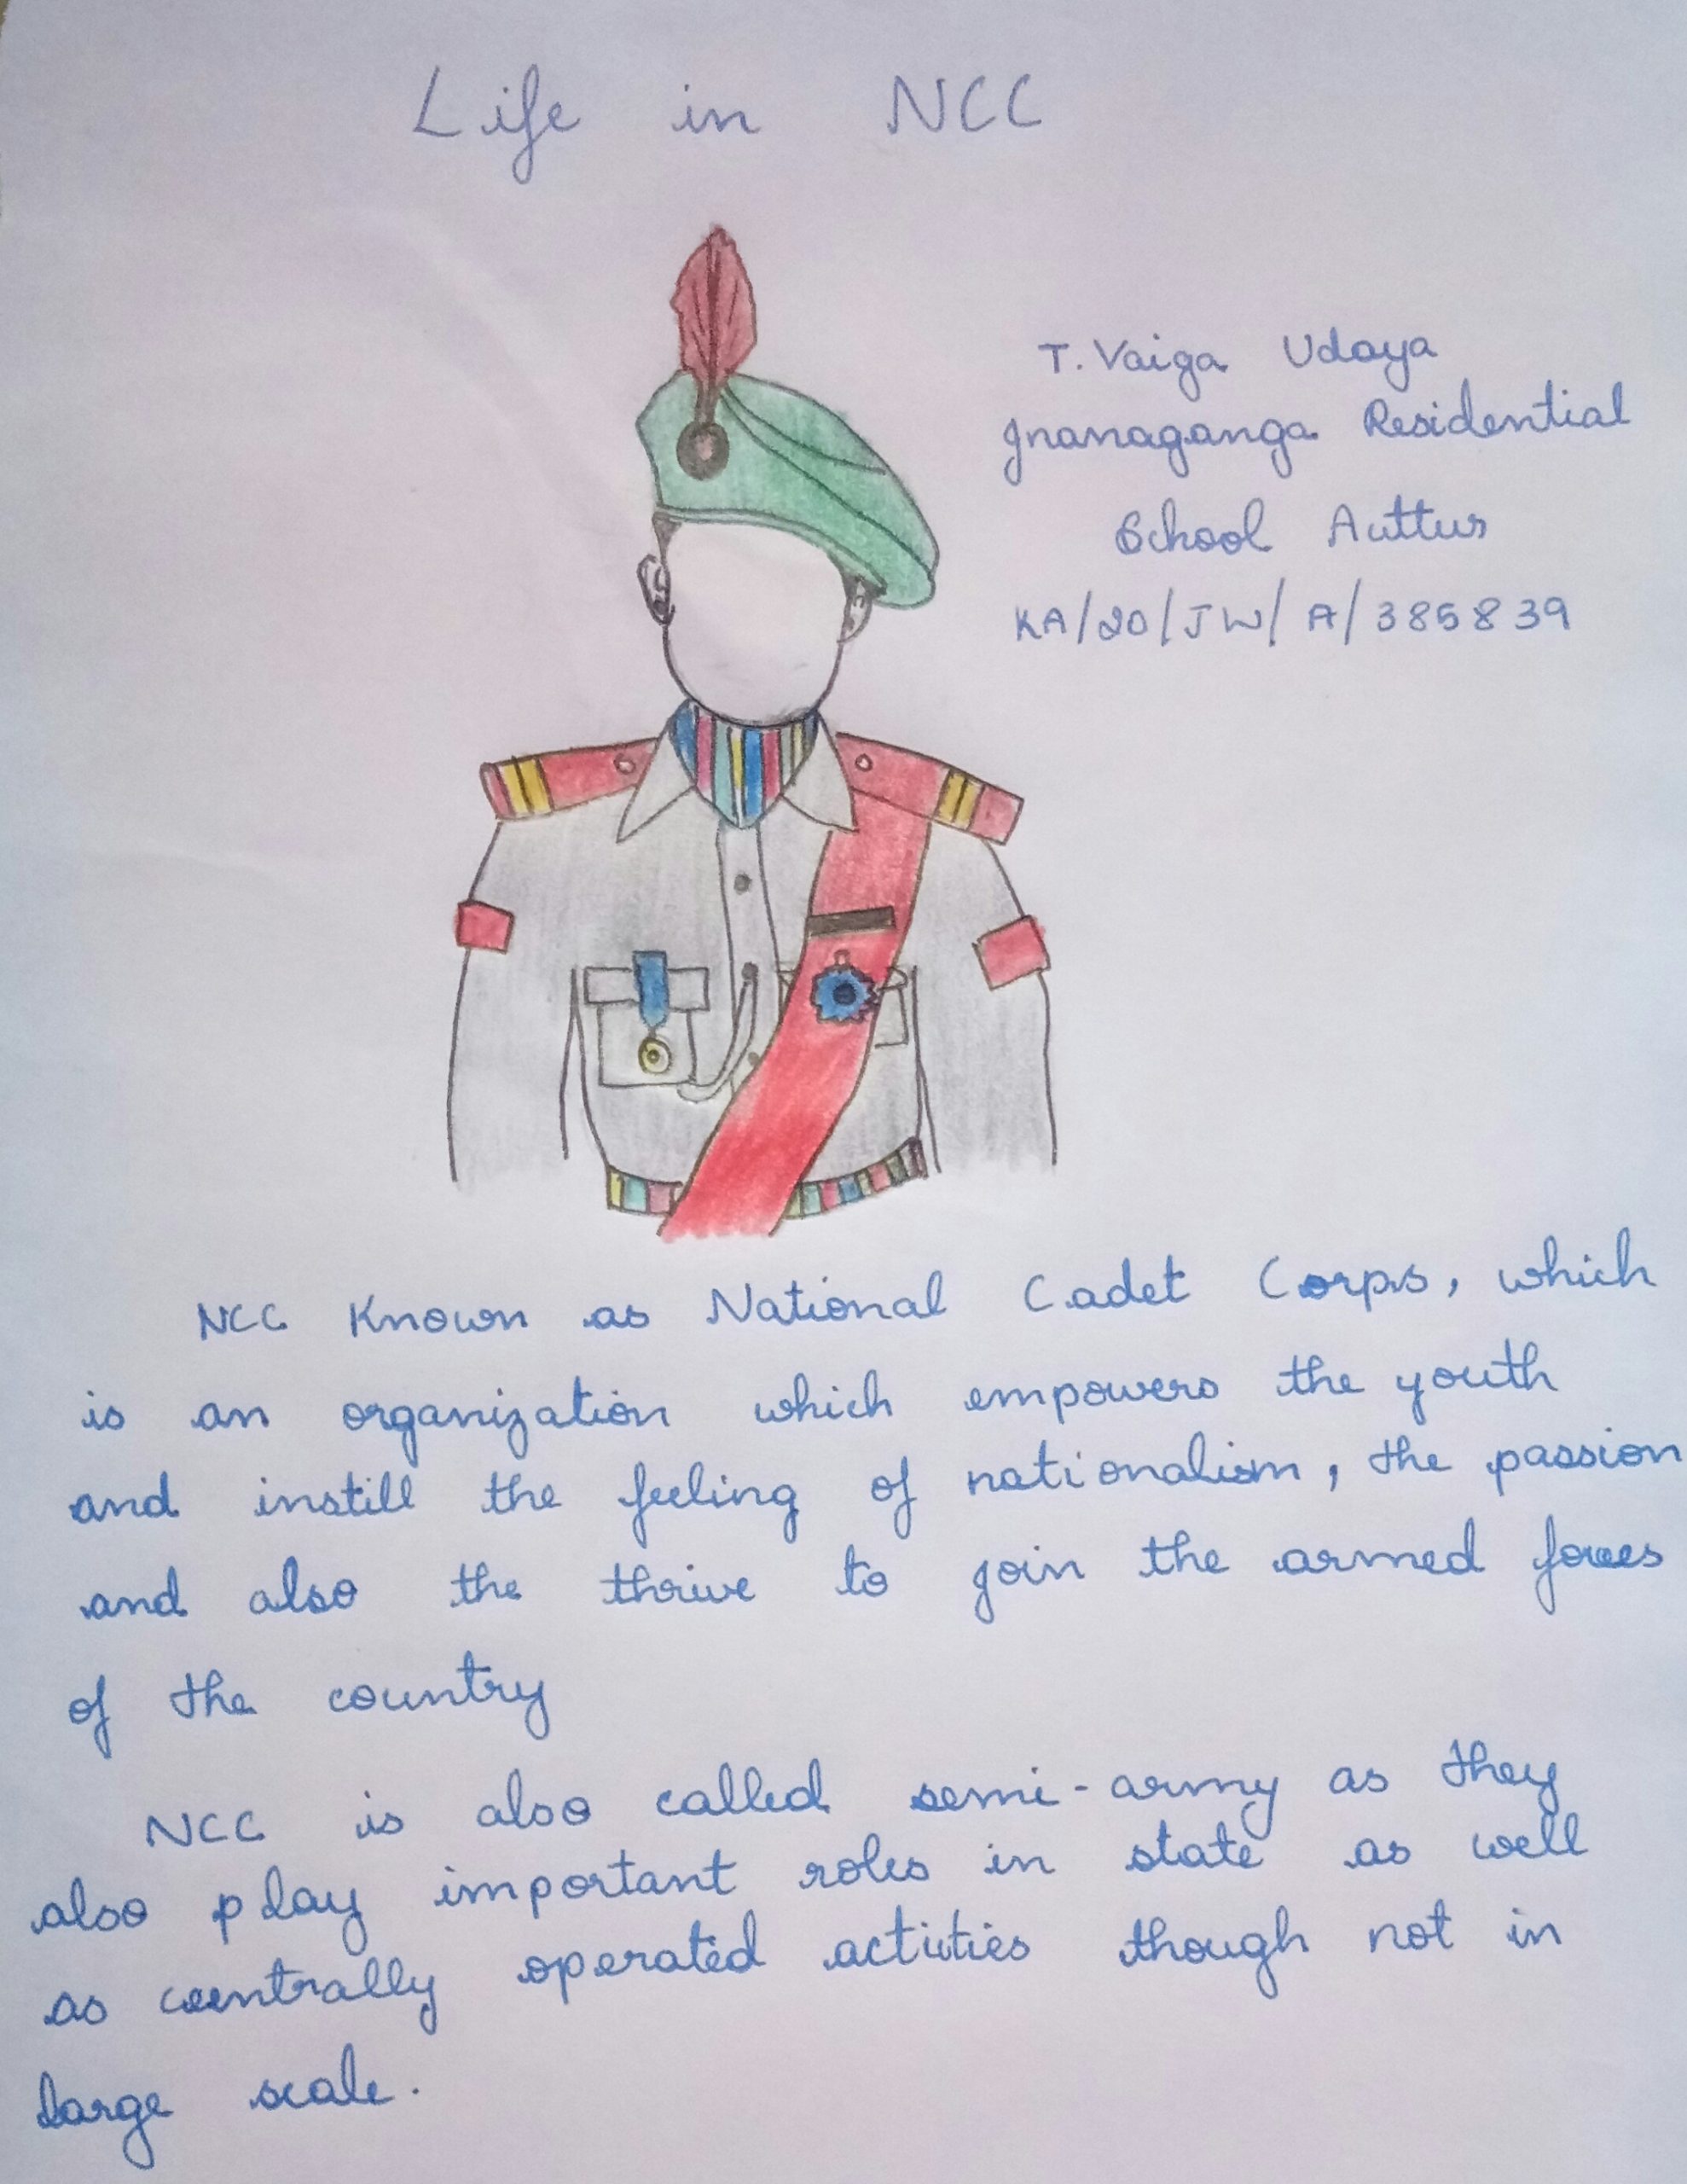 Life in NCC
T. Vaiga Udaya
Jnanaganga Residential
School Auttur
KA/20/JW/A/385839
NCC Known as National Cadet Corps, which
is an organization which empowers the youth
and instill the feeling of nationalism, the passion
and also the thrive to join the armed forces
of the country
NCC is also called semi-army as they
also play important roles in state as well
as centrally operated activities though not in
large scale.